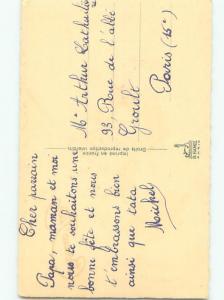 Cher parrain
Papa, maman et moi
nous te souhaitons une
bonne fête et nous
t'embrassons bien
ainsi que tata
Michel
Imprimé en France
Droits de reproduction interdits
Mr Arthur
93, Rue de l'abbé
Groult
Paris (15e)